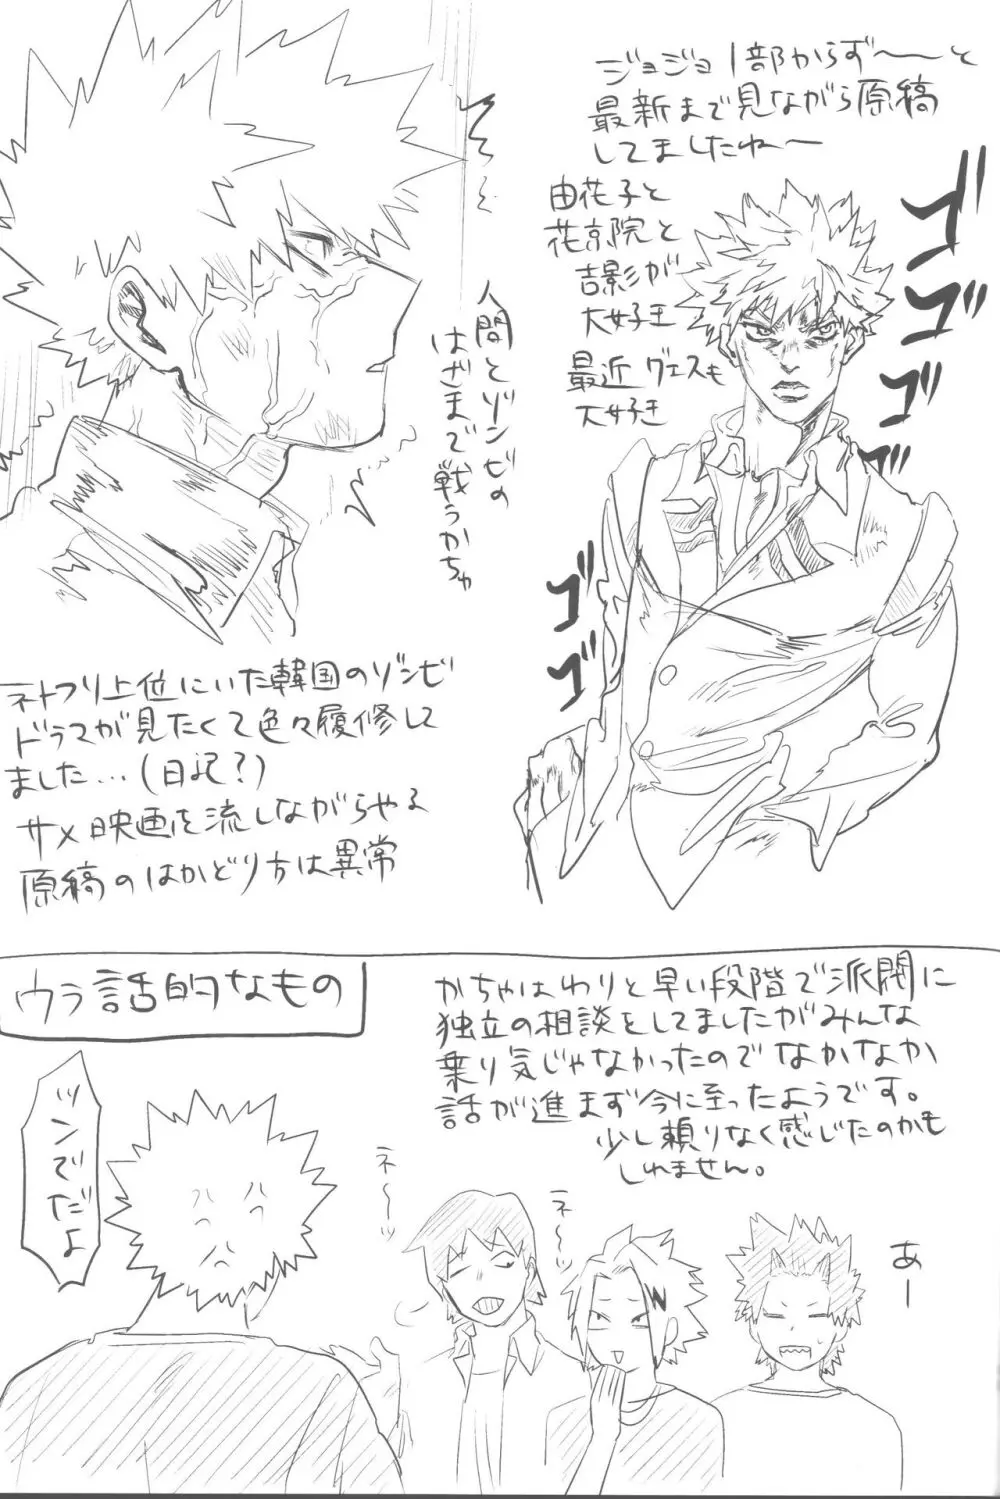 ジョジョ1部からず〜〜と
最新まで見ながら原稿
してましたねー
由花子と
花京院と
吉影が
大好き
最近 ヴェスも
大好き
ゴゴゴゴ
ゴゴ
人間とゾンビの
はざまで戦うかちゃ
ネトフリ上位にいた韓国のゾンビ
ドラマが見たくて色々履修して
ました…(日記?)
サメ映画を流しながらやる
原稿のはかどり方は異常
ウラ話的なもの
かちゃはわりと早い段階で派閥に
独立の相談をしてましたがみんな
乗り気じゃなかったのでなかなか
話が進まず今に至ったようです。
少し頼りなく感じたのかも
しれません。
ツンでだよ
ネ〜〜
ネ〜〜
あー